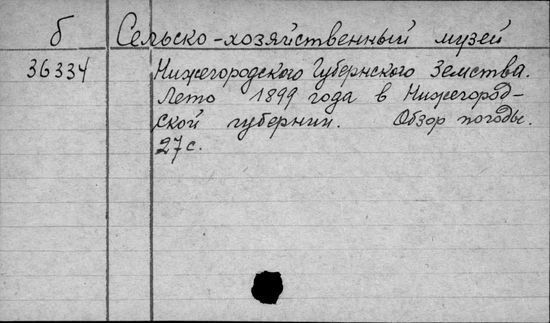 б Сельско-хозяйственный музей
36334 Нижегородского Губернского Земства.
Лето 1899 года в Нижегород-
ской губернии. Обзор погоды.
27 с.